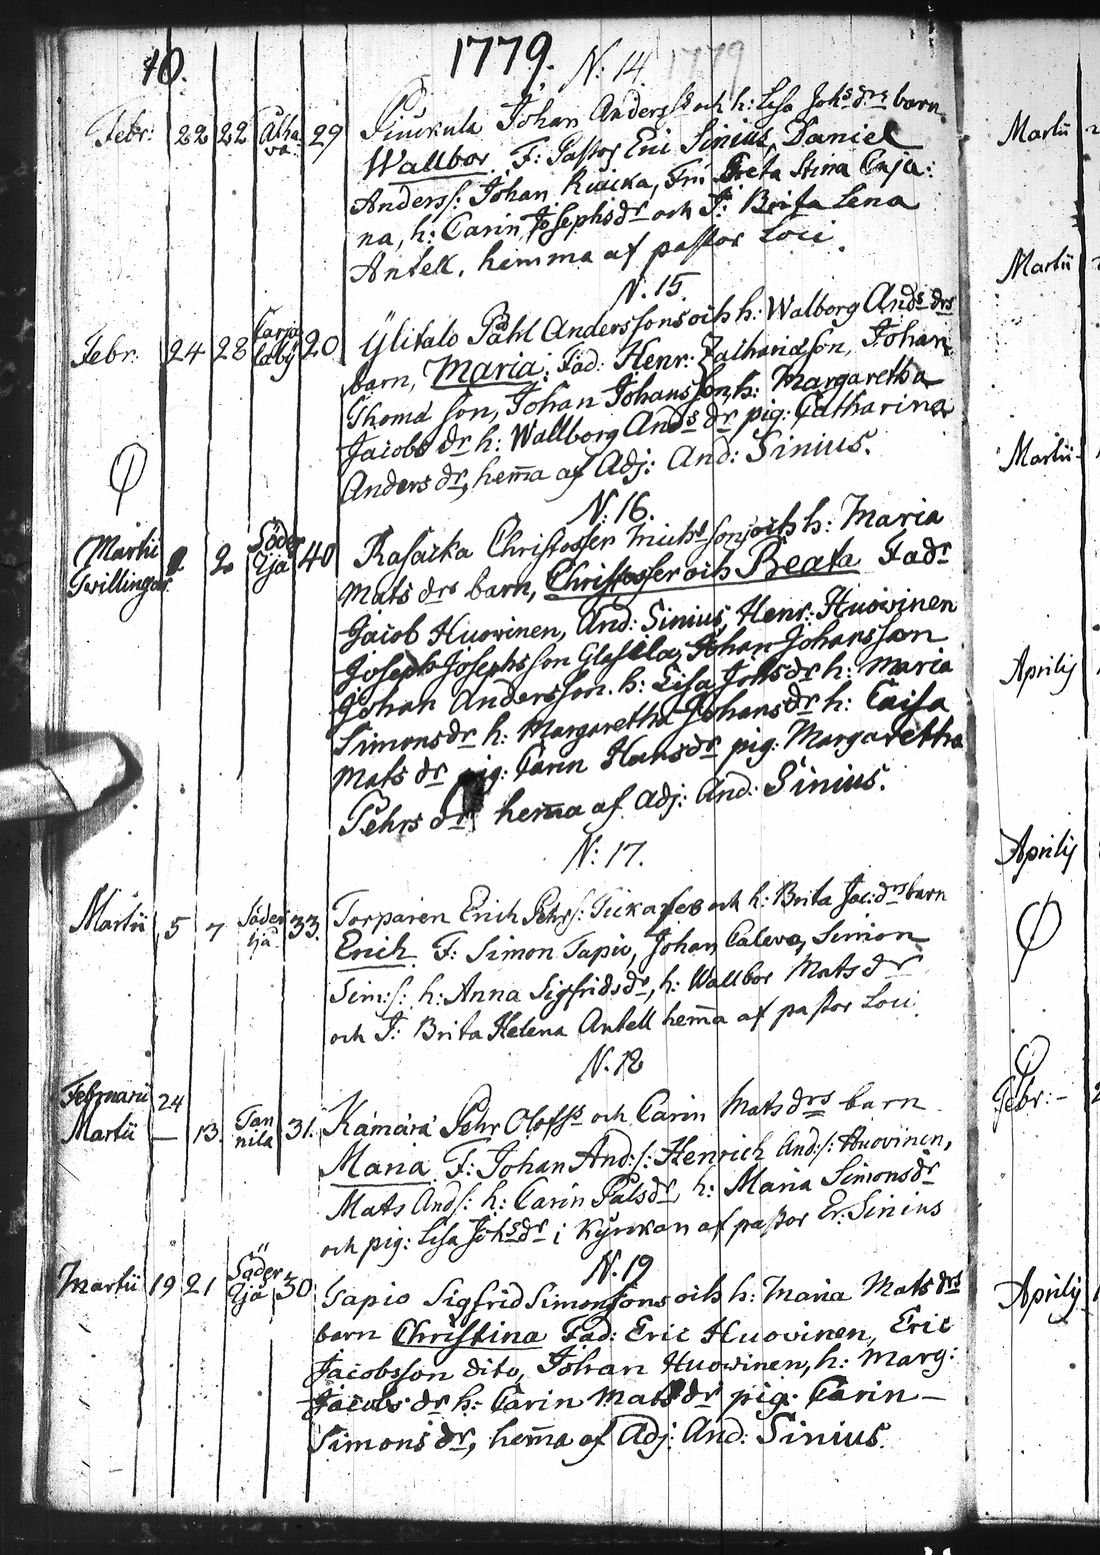 10. 1779.
N: 14. 1779
Febr: 22 22 29 Johan Anderss och h: Lisa Johsdrs barn
Wallbor. F: Pastor Eric Sinius, Daniel
Anderss: Johan Greta Stina Caja:
na, h: Carin Josephsdr och J: Brita Lena
Antell, hemma af pastor Loci.
N. 15.
Febr. 24 28 Carja laby 20 Ylitalo Påhl Anderssons och h: Walborg Andsdrs
barn, Maria; Fad: Henr: Zachariason, Johan
Thomæson, Johan Johansson, h: Margaretha
Jacobsdr h: Wallborg Andsdr pig: Catharina
Andersdr, hemma af Adj: And: Sinius.
N. 16.
Martii 2 2 Söder Ljå 40 Rasacka Christoffer Michsons och h: Maria
Twillingar Matsdrs barn, Christoffer och Beata Fadr
Jacob Huovinen, And: Sinius, Henr: Huovinen
Joseph Josephsson Johan Johansson
Johan Andersson. h: Lisa Johsdr h: Maria
Simonsdr h: Margaretha Johansdr h: Caisa
Matsdr pig: Carin Hansdr pig: Margaretha
Pehrsdr hemma af Adj: And: Sinius.
N: 17.
Martii 5 7 Söder ljå 33. Torparen Erich Pehrs: och h: Brita Jac:drs barn
Erich. F: Simon Tapio, Johan Caleva, Simon
Sim:s: h: Anna Sigfridsdr, h: Wallbor Matsdr
och J: Brita Helena Antell hemma af pastor Loci.
N. 18
Februarii 24
Martii – 13. Tan nila 31. Kámárá Pehr Olofss och Carin Matsdrs barn
Maria F: Johan And:s: Henrich And:s: Huovinen,
Mats Ands: h: Carin Pålsdr, h: Maria Simonsdr
och pig: Lisa Johsdr i Kyrkan af pastor Er: Sinius
N. 19
Martii 19 21 Söder Ljå 30 Tapio Sigfrid Simonsons och h: Maria Matsdrs
barn Christina Fad: Eric Huovinen, Eric
Jacobsson dito, Johan Huovinen, h: Marg:
Jacobsdr h: Carin Matsdr pig: Carin –
Simonsdr, hemma af Adj: And: Sinius.
Martii
Martii
Martii
Aprilis
Aprilis
Febr: –
Aprilis